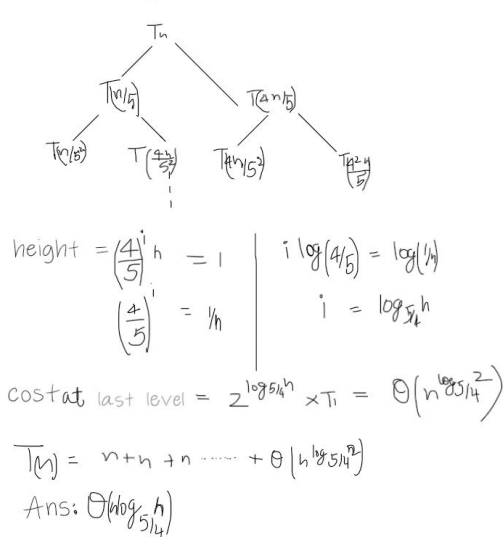 Tn
T(n/5) T(4n/5)
T(n/5²) T(4n/5²) T(4n/5²) T(4²n/5)
height = (4/5)^i n = 1
(4/5)^i = 1/n
i log(4/5) = log(1/n)
i = log_5/4 n
cost at last level = 2^log5/4 n × T1 = θ(n^log5/4 2)
T(n) = n+n+n ...... + θ(n^log5/4 2)
Ans: θ(nlog_5/4 n)